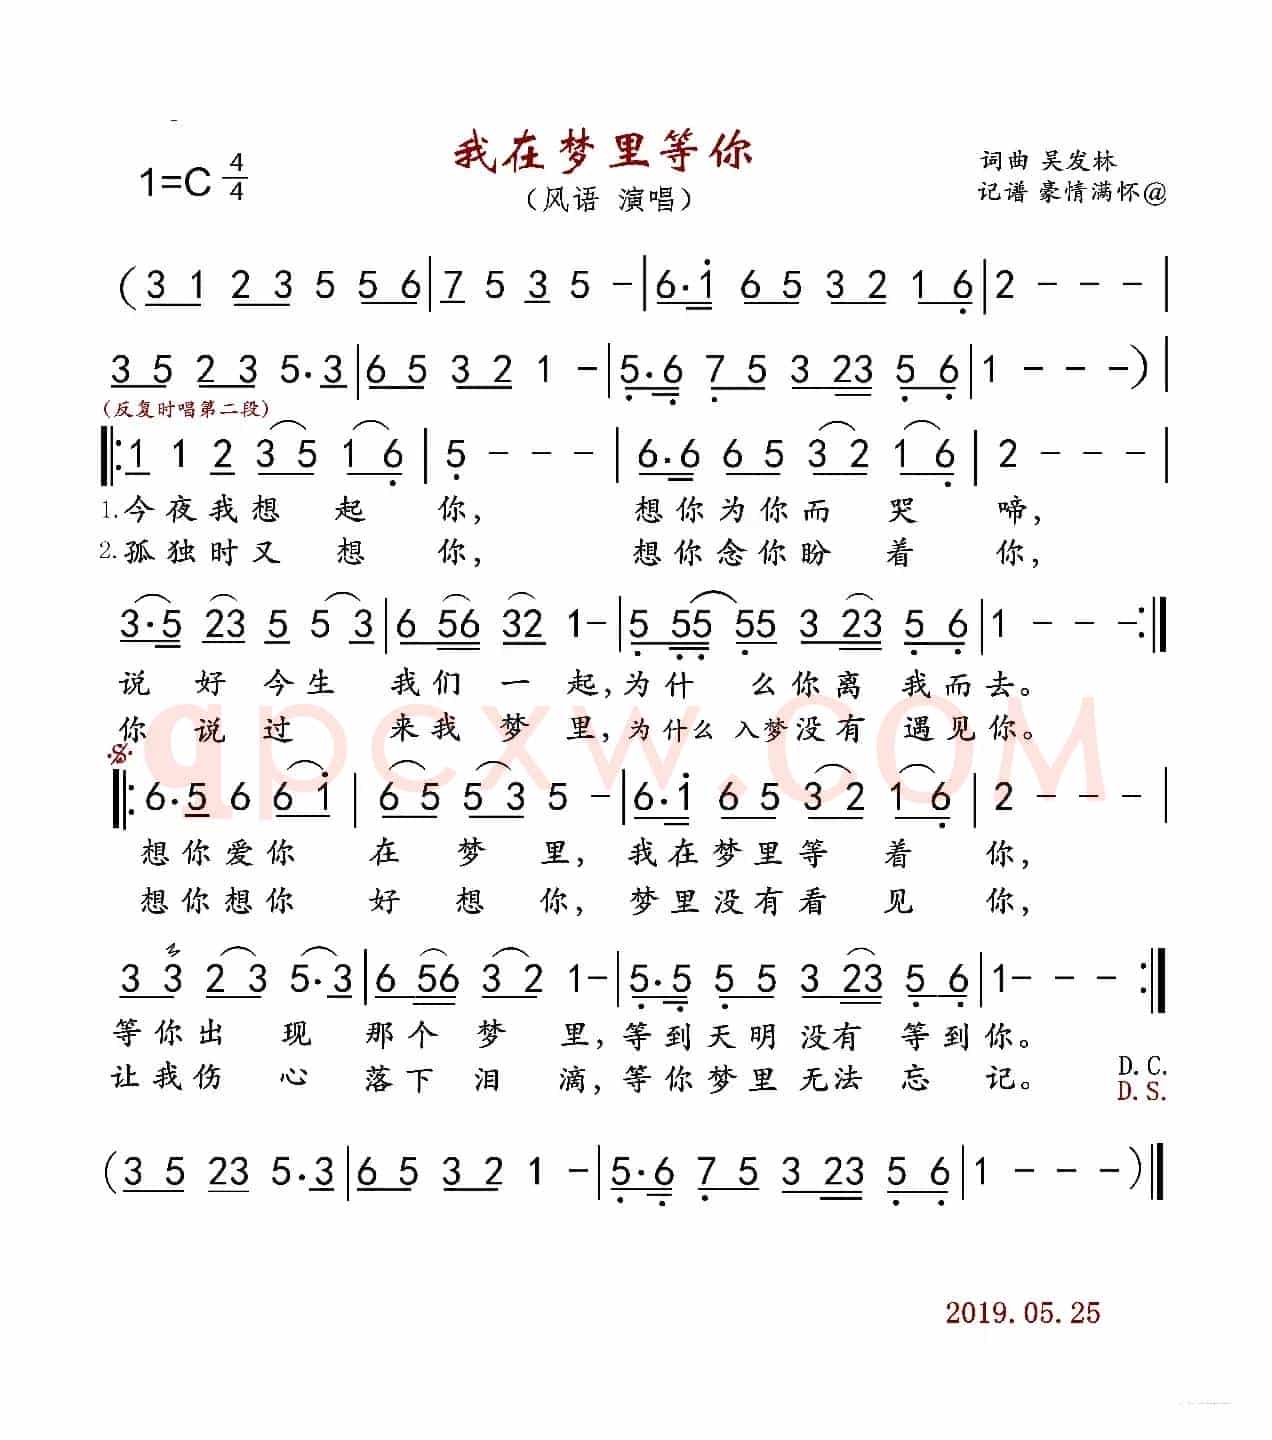 我在梦里等你
1=C 4/4
(风语 演唱)
词曲 吴发林
记谱 豪情满怀@
(3 1 2 3 5 5 6|7 5 3 5 -|6·i 6 5 3 2 1 6|2 - - -|
3 5 2 3 5·3|6 5 3 2 1 -|5·6 7 5 3 23 5 6|1 - - -)|
(反复时唱第二段)
‖:1 1 2 3 5 1 6|5 - - -|6·6 6 5 3 2 1 6|2 - - -|
1.今夜我想起你, 想你为你而哭啼,
2.孤独时又想你, 想你念你盼着你,
3·5 23 5 5 3|6 56 32 1-|5 55 55 3 23 5 6|1 - - -:‖
说好今生我们一起,为什么你离我而去。
你说过来我梦里,为什么入梦没有遇见你。
qpcxw.COM
‖:6·5 6 6 i|6 5 5 3 5 -|6·i 6 5 3 2 1 6|2 - - -|
想你爱你在梦里, 我在梦里等着你,
想你想你好想你, 梦里没有看见你,
3 3 2 3 5·3|6 56 3 2 1-|5·5 5 5 3 23 5 6|1- - -:‖
等你出现那个梦里,等到天明没有等到你。
让我伤心落下泪滴,等你梦里无法忘记。
D.C.
D.S.
(3 5 23 5·3|6 5 3 2 1 -|5·6 7 5 3 23 5 6|1 - - -)‖
2019.05.25